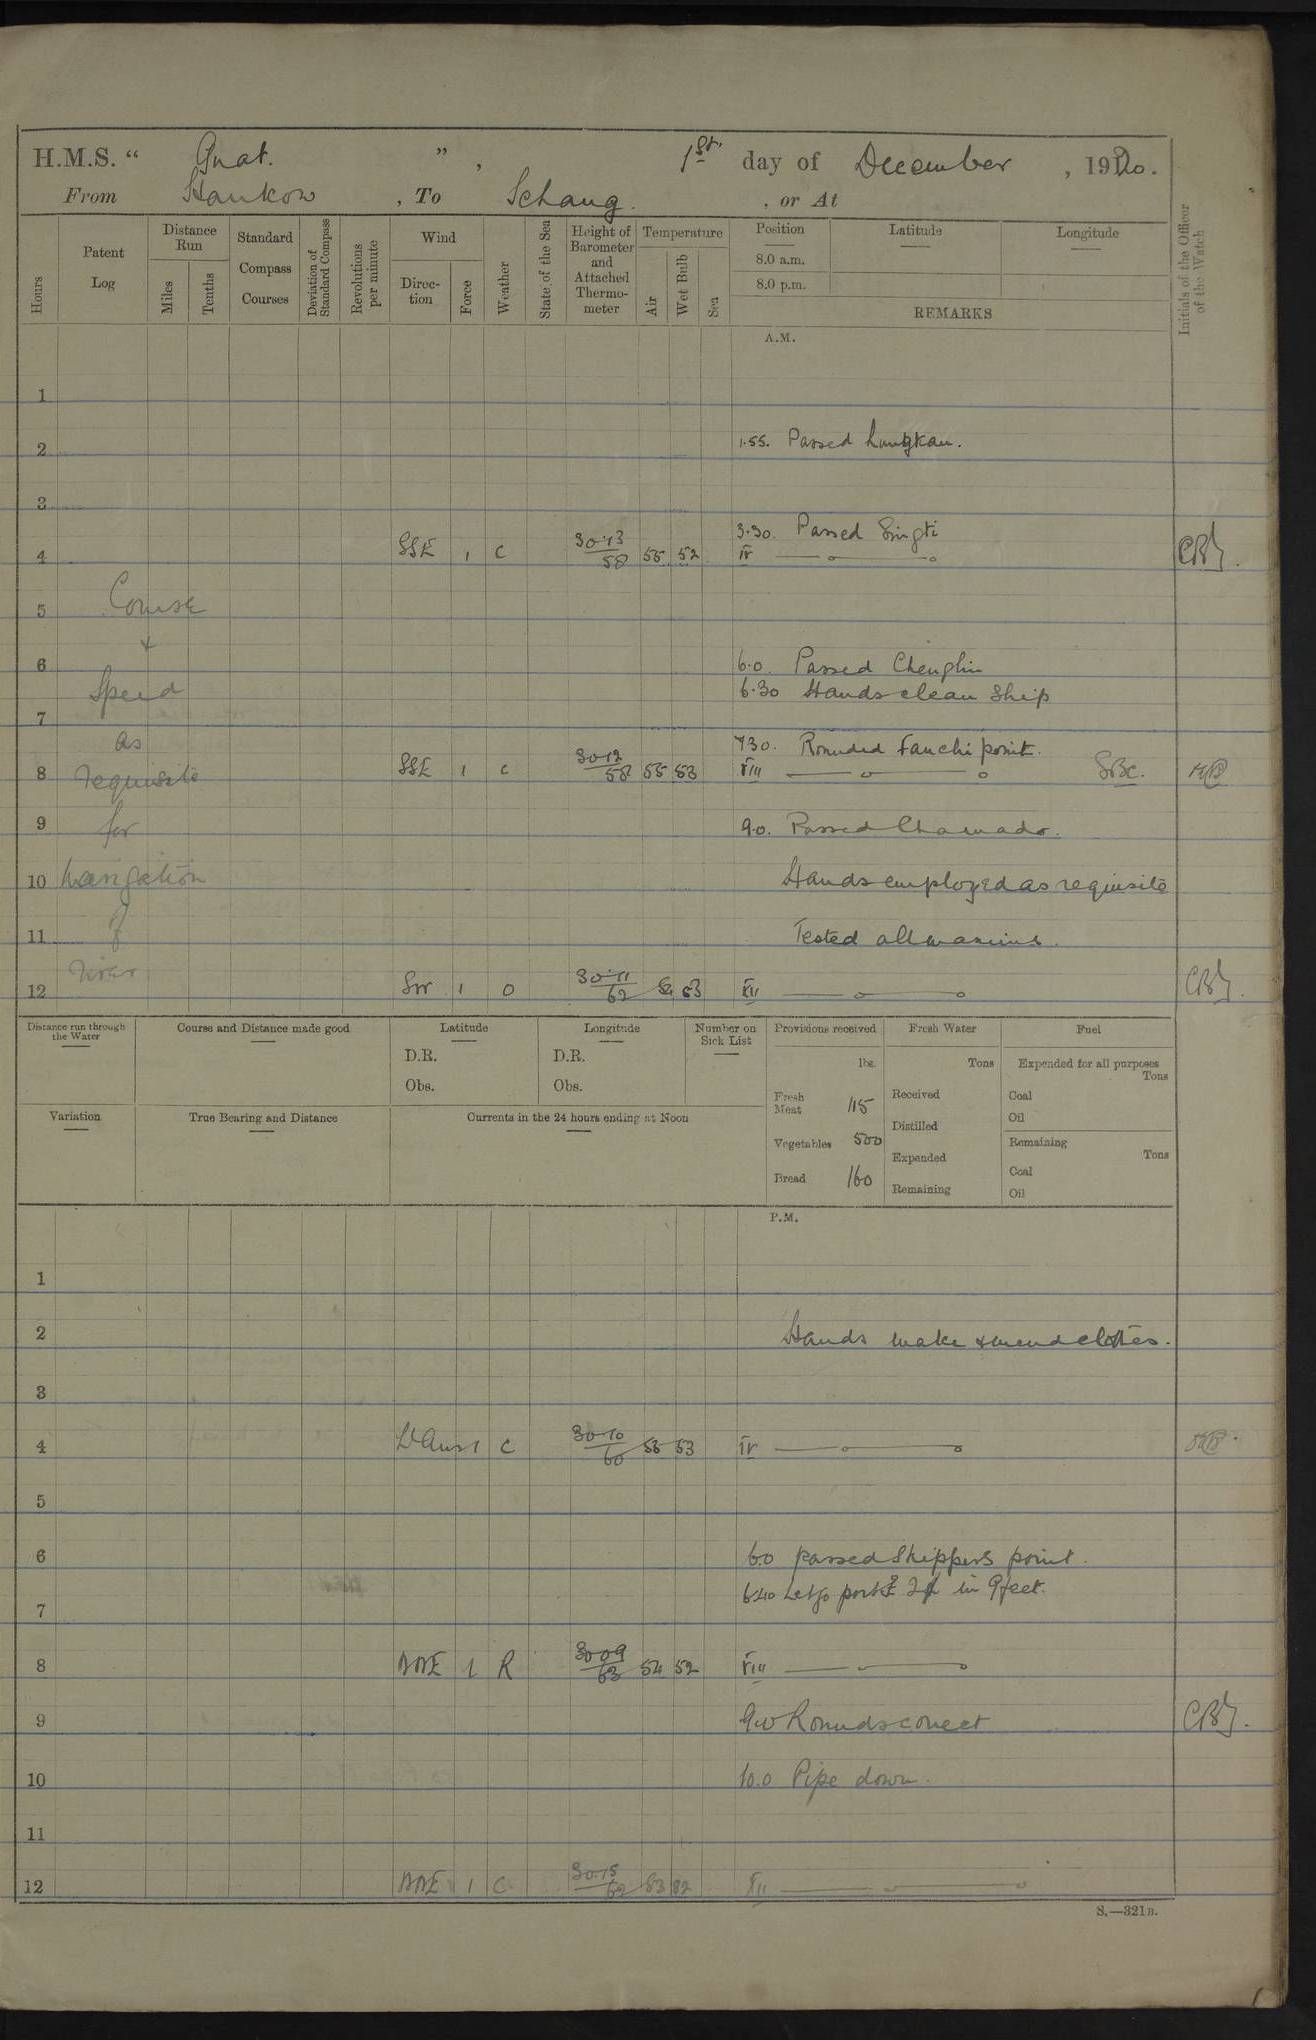 H.M.S. “ Gnat. ” , 1st. day of December , 1920.
From Hankow , To Ichang. , or At
Hours
Patent Log
Distance Run
Miles
Tenths
Standard Compass Courses
Deviation of Standard Compass
Revolutions per minute
Wind
Direc-tion
Force
Weather
State of the Sea
Height of Barometer and Attached Thermo-meter
Temperature
Air
Wet Bulb
Sea
Position
8.0 a.m.
8.0 p.m.
Latitude
Longitude
REMARKS
Initials of the Officer of the Watch
A.M.
1
2 1.55. Passed
3
3.30. Passed Singti
4 SSE 1 c 30.13 58 55 52 IV
5 Course
+
6 6.0. Passed Chenglin
Speed 6.30 Hands clean Ship
7
as 7.30. Rounded Fanchi point.
8 requisite SSE 1 c 30.12 58 55 53 VIII
9 for 9.0. Passed
10 navigation Hands employed as requisite
11 of Tested
12 river SW 1 o 30.11 62 53 XII
Distance run through the Water
Course and Distance made good
Latitude
D.R.
Obs.
Longitude
D.R.
Obs.
Number on Sick List
Provisions received
lbs.
Fresh Meat 115
Vegetables 500
Bread 160
Fresh Water
Tons
Received
Distilled
Expended
Remaining
Fuel
Expended for all purposes
Tons
Coal
Oil
Remaining
Tons
Coal
Oil
Variation
True Bearing and Distance
Currents in the 24 hours ending at Noon
P.M.
1
2 Hands make & mend clothes.
3
4 Lt Airs 1 c 30.10 60 55 53 IV
5
6 6.0 passed Skippers point.
6.40 Let go port in 9 feet.
7
8 NNE 1 R 30.09 63 54 52 VIII
9 9.0 Rounds correct
10 10.0 Pipe down.
11
12 NNE 1 C 30.15 62 53 52 XII
S.—321B.